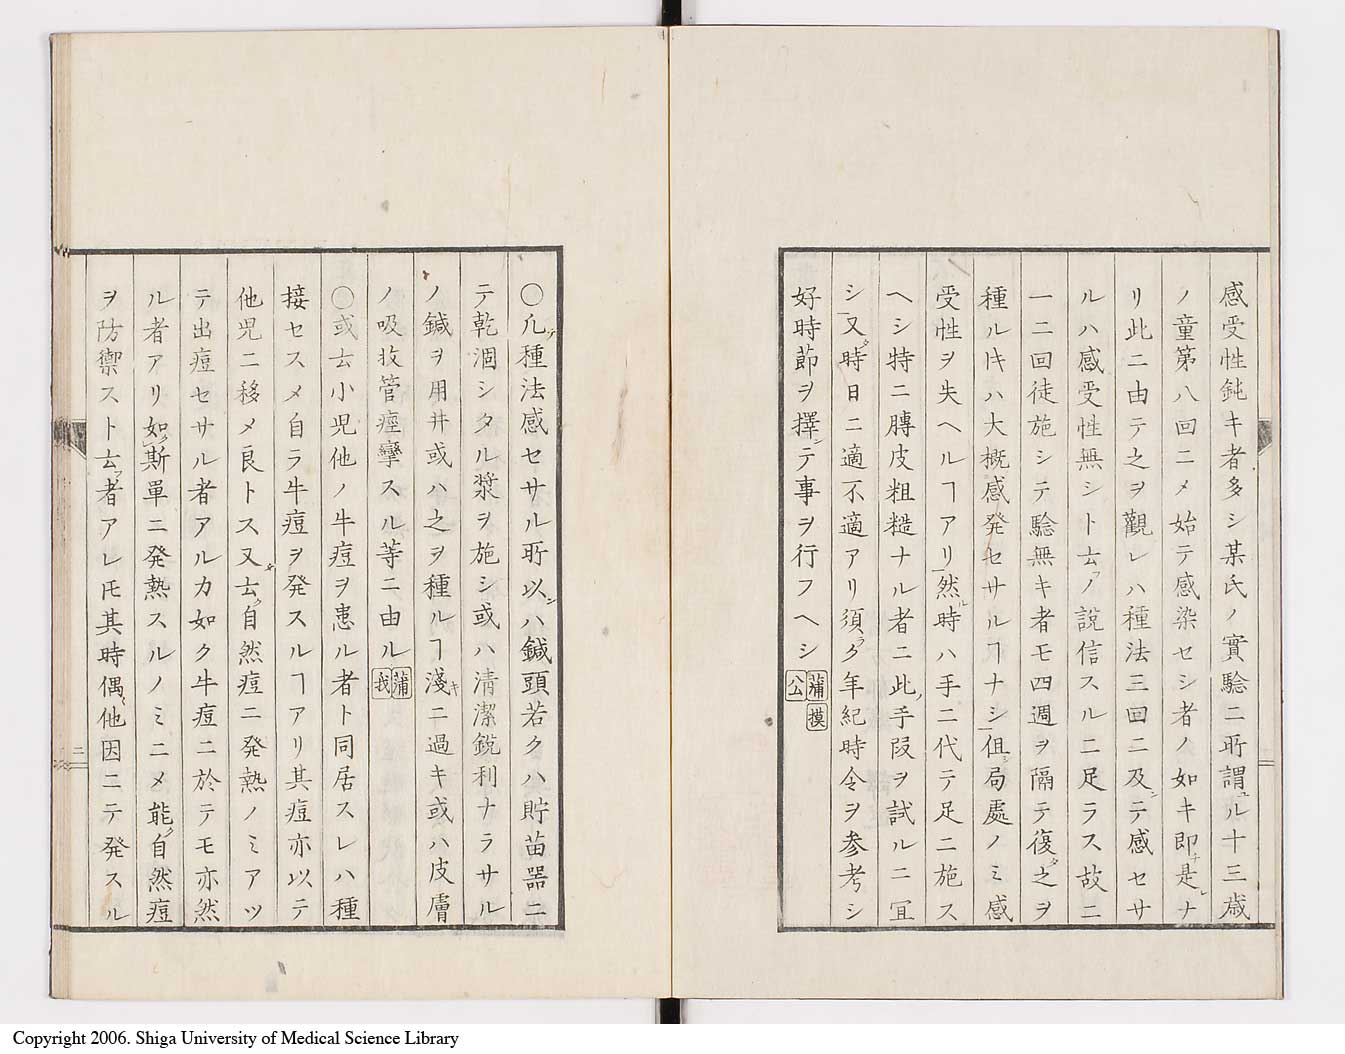 感受性鈍キ者多シ某氏ノ實驗ニ所謂ユル十三歳
ノ童第八回ニメ始テ感染セシ者ノ如キ即チ是レナ
リ此ニ由テ之ヲ觀レハ種法三回ニ及シテ感セサ
ルハ感受性無シト云フノ説信スルニ足ラス故ニ
一二回徒施シテ驗無キ者モ四週ヲ隔テ復タ之ヲ
種ルヰハ大概感発セサルヿナシ但シ局處ノミ感
受性ヲ失ヘルヿアリ然ル時ハ手ニ代テ足ニ施ス
ヘシ特ニ膊皮粗糙ナル者ニ此ノ手段ヲ試ルニ宜
シ又タ時日ニ適不適アリ須ラク年紀時令ヲ参考シ
好時節ヲ擇ンテ事ヲ行フヘシ蒲公摸
〇凢テ種法感セサル所以シハ鍼頭若クハ貯苗器ニ
テ乾涸シタル漿ヲ施シ或ハ清潔鋭利ナラサル
ノ鍼ヲ用井或ハ之ヲ種ルヿ淺キニ過キ或ハ皮膚
ノ吸收管痙攣スル等ニ由ル蒲我
〇或云小児他ノ牛痘ヲ患ル者ト同居スレハ種
接セスメ自ラ牛痘ヲ発スルヿアリ其痘亦以テ
他児ニ移メ良トス又タ云ク自然痘ニ発熱ノミアツ
テ出痘セサル者アルカ如ク牛痘ニ於テモ亦然
ル者アリ如クレ斯單ニ発熱スルノミニメ能ク自然痘
ヲ防禦スト云フ者アレ𪜈其時偶〻他因ニテ発スル
二
Copyright 2006. Shiga University of Medical Science Library